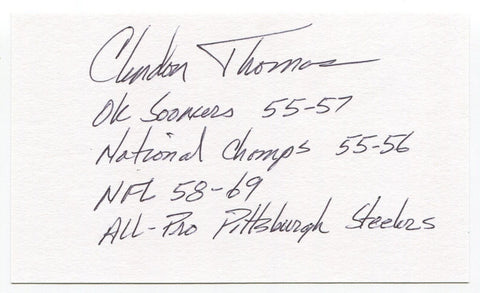 Clendon Thomas
OK Sooners 55-57
National Champs 55-56
NFL 58-69
ALL-Pro Pittsburgh Steelers